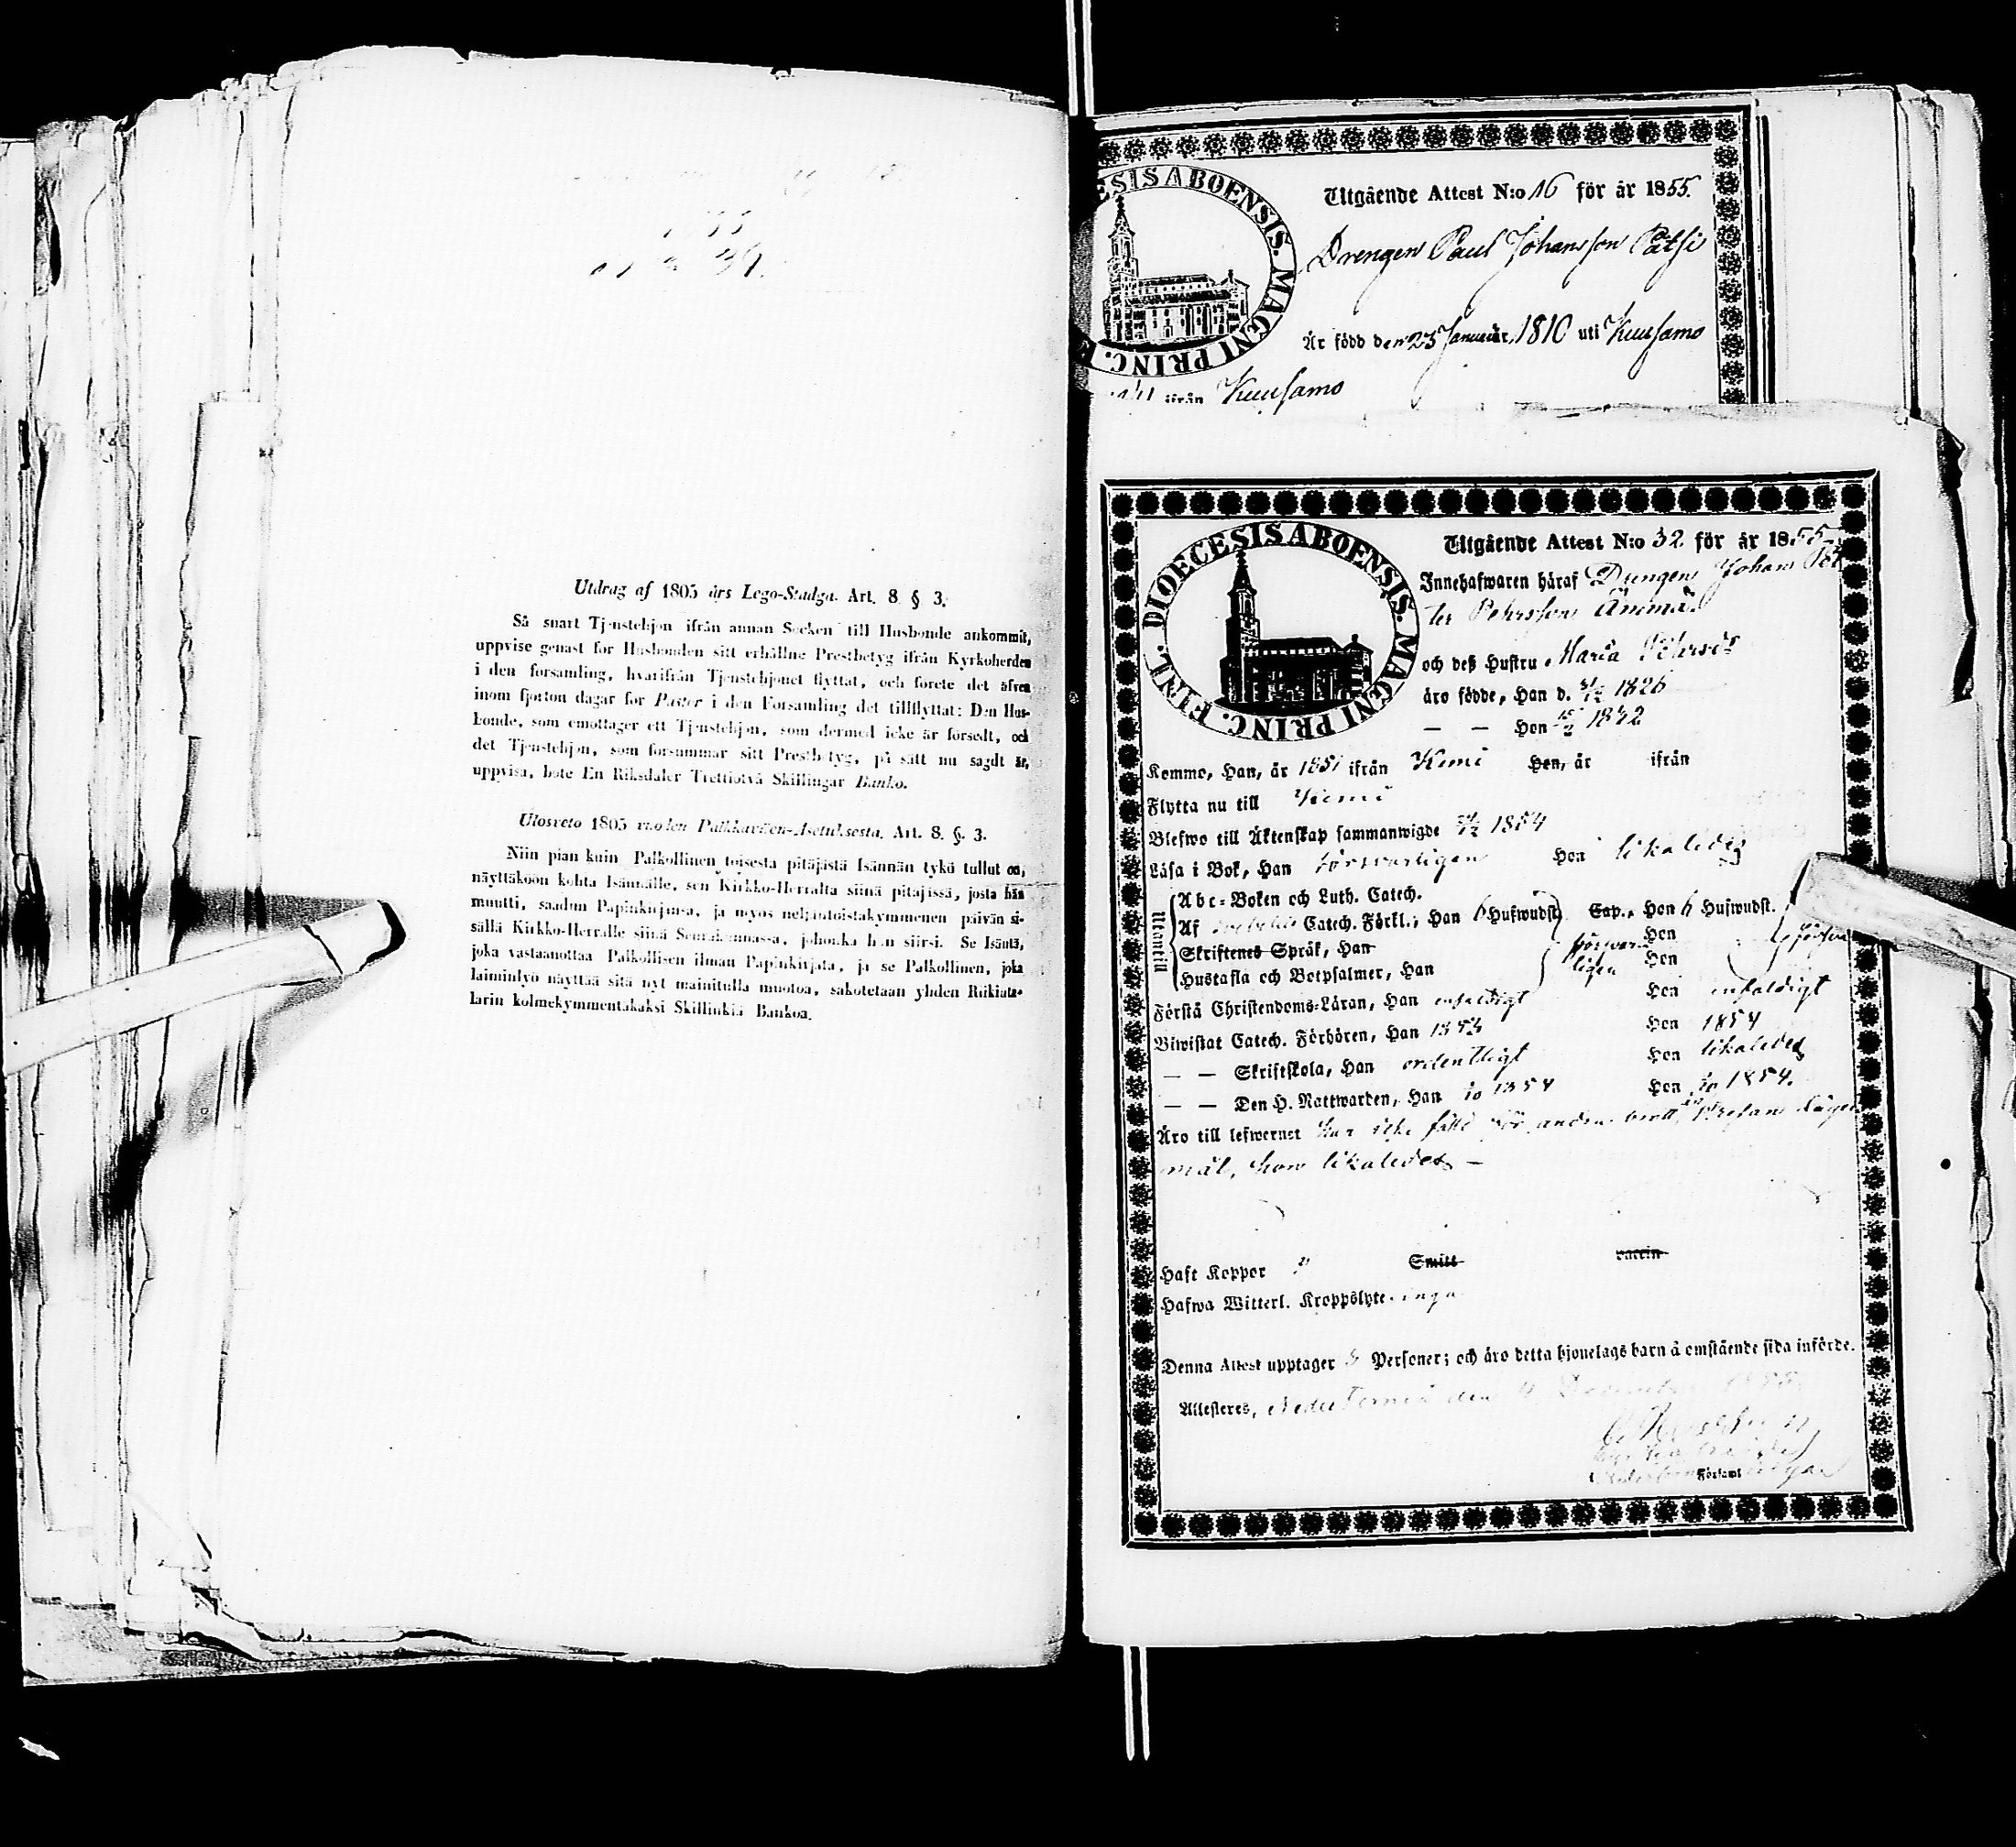 1855
Utdrag af 1805 års Lego-Stadga. Art. 8 § 3.
Så snart Tjenstehjon ifrån annan Socken till Husbonde ankommit,
uppvise genast för Husbonden sitt erhållne Prestbetyg ifrån Kyrkoherden
i den församling, hvarifrån Tjenstehjonet flyttat, och förete det äfven
inom fjorton dagar för Pastor i den Församling det tillflyttat: Den Hus-
bonde, som emottager ett Tjenstehjon, som dermed icke är försedt, och
det Tjenstehjon, som försummar sitt Prestbetyg, på sätt nu sagdt är,
uppvisa, böte En Riksdaler Trettiotvå Skillingar Banko.
Ulosveto 1805 vuoden Palkkavāen-Asetuksesta. Art. 8. §. 3.
Niin pian kuin Palkollinen toisesta pitäjästä Isännän tykö tullut on,
näyttäköön kohta Isännälle, sen Kirkko-Herralta siinä pitäjässä, josta hän
muutti, saadun Papinkirjansa, ja myös neljäntoistakymmenen päivän si-
sällä Kirkko-Herralle siinä Seurakunnassa, johonka hän siirsi. Se Isäntä,
joka vastaanottaa Palkollisen ilman Papinkirjata, ja se Palkollinen, joka
laiminlyö näyttää sitä nyt mainitulla muotoa, sakotetaan yhden Riikiata-
larin kolmekymmentäkaksi Skillinkiä Bankoa.
ESIS ABOENSIS. MAGNI PRINC. F
Utgående Attest N:o 16 för år 1855.
Drengen Paul Johansson Pätsi
Är född den 23 Januari, 1810 uti Kuusamo
ifrån Kuusamo
DIOECESIS ABOENSIS. MAGNI PRINC. FINL.
Utgående Attest N:o 32 för år 1855
Innehafwaren häraf Drengen Johan Pet
ter Pehrsson Ämmä
och deß Hustru Maria Pehrsdr
äro födde, Han d. 1826
— — Hon 15/2 1832
Komme, Han, år 1851 ifrån Kemi Hon, år ifrån
Flytta nu till Kemi
Blefwo till Äktenskap sammanwigde 1854
Läsa i Bok, Han försvarligen Hon likaledes
Utantill
Abc-Boken och Luth. Catech.
Af Catech. Förkl., Han 6 Hufwudst. Cap., Hon 6 Hufwudst.
Skriftenes Språk, Han försvar- Hon
Hustafla och Botpsalmer, Han ligen Hon
Förstå Christendoms-Läran, Han enfaldigt Hon enfaldigt
Biwistat Catech. Förhören, Han 1853 Hon 1854
— — Skriftskola, Han ordentligt Hon likaledes
— — Den H. Nattwarden, Han 1854 Hon 1854.
Äro till lefwernet
mål, hon likaledes —
Haft Koppor Smitt vaccin
Hafwa Witterl. Kroppslyte inga
Denna Attest upptager Personer; och äro detta hjonelags barn å omstående sida införde.
Attesteres, Neder Torneå den December 1855
Församl